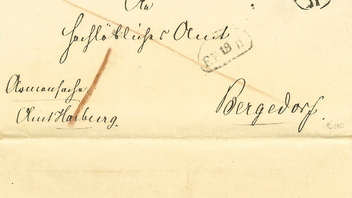 An
hochlöbliches Amt
18
Armensache
Amt Harburg.
Bergedorf.